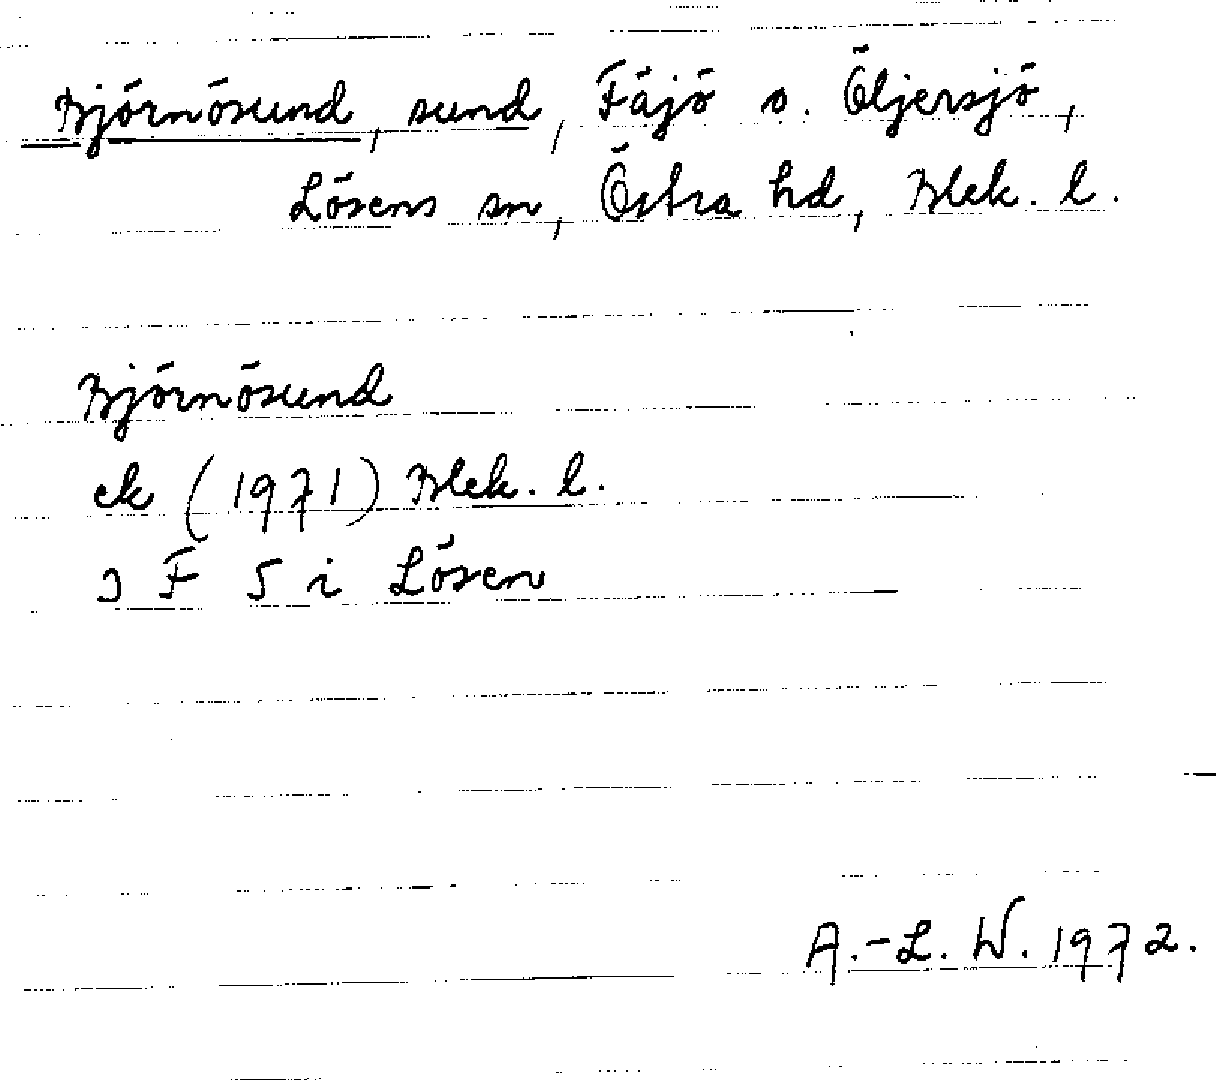 Björnösund, sund, Fäjö o. Öljersjö,
Lösens sn, Östra hd, Blek. l.
Björnösund
ek (1971) Blek. l.
3 F 5 i Lösen
A.-L. W. 1972.